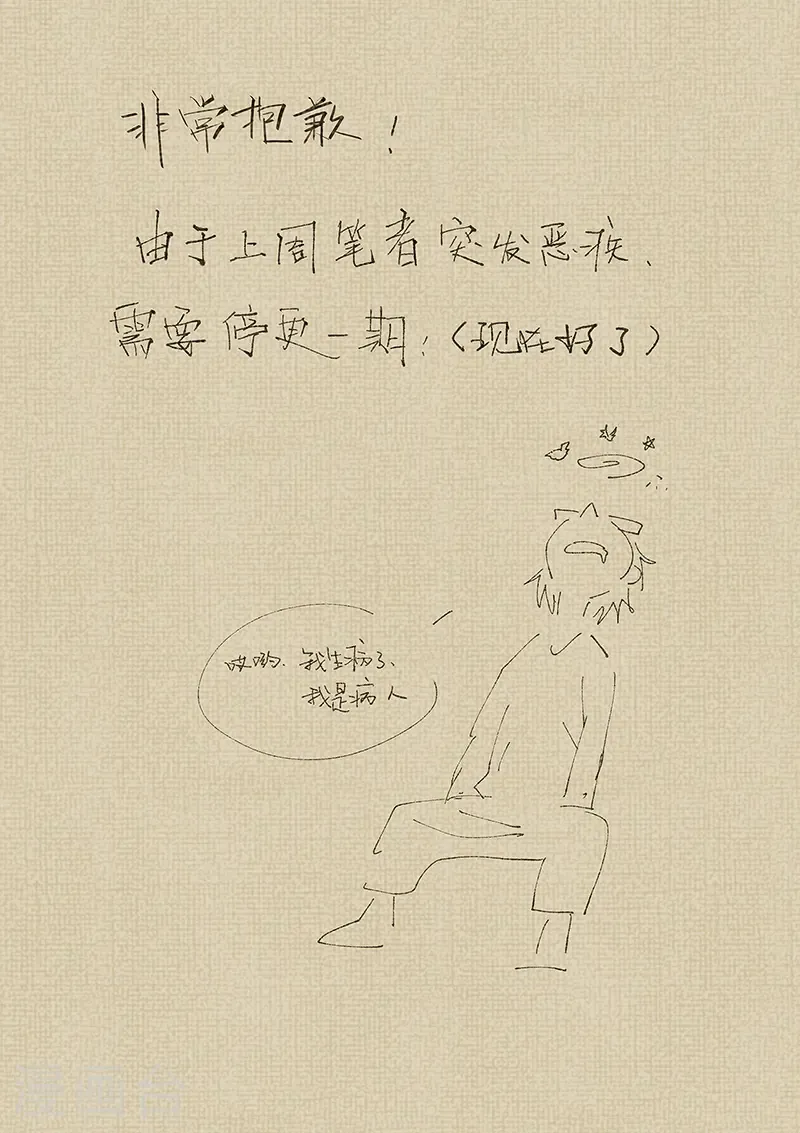 非常抱歉！
由于上周笔者突发恶疾、
需要停更一期；（现在好了）
哎哟、我生病了、
我是病人